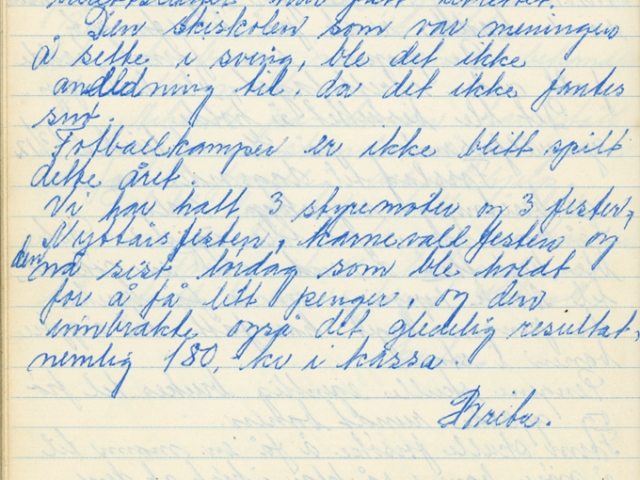 Den skiskolen som var meningen
å sette i sving, ble det ikke
anledning til, da det ikke fantes
snø.
Fotballkamper er ikke blitt spilt
dette året.
Vi har hatt 3 styremøter og 3 fester,
Nyttårsfesten, karnevallfesten og
den nå sist lørdag som ble holdt
for å få litt penger, og den
innbrakte også det gledelig resultat,
nemlig 180, kr i kassa.